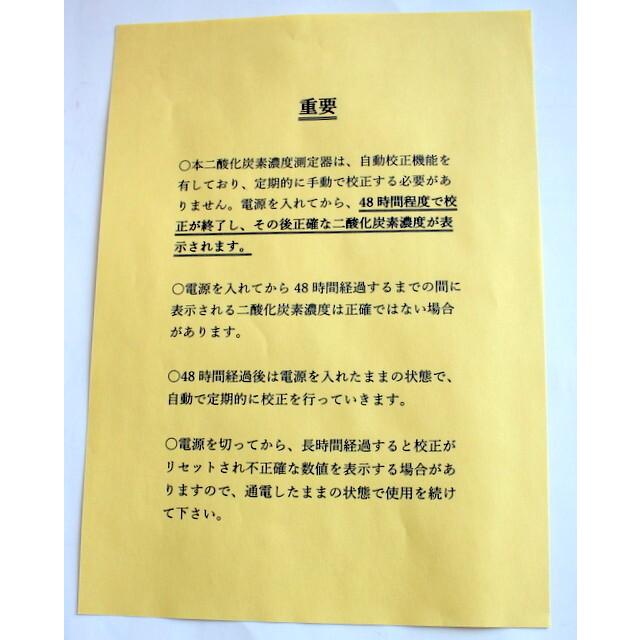 重要
○本二酸化炭素濃度測定器は、自動校正機能を
有しており、定期的に手動で校正する必要があ
りません。電源を入れてから、48時間程度で校
正が終了し、その後正確な二酸化炭素濃度が表
示されます。
○電源を入れてから48時間経過するまでの間に
表示される二酸化炭素濃度は正確ではない場合
があります。
○48時間経過後は電源を入れたままの状態で、
自動で定期的に校正を行っていきます。
○電源を切ってから、長時間経過すると校正が
リセットされ不正確な数値を表示する場合があ
りますので、通電したままの状態で使用を続け
て下さい。